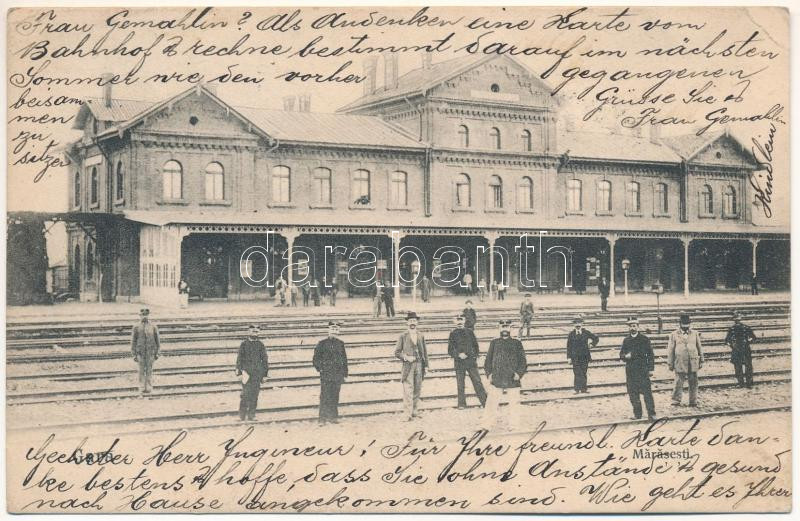 Frau Gemahlin? Als Andenken eine Karte vom
Bahnhof & rechne bestimmt darauf im nächsten
Sommer wie den vorher gegangenen
beisam-
men
zu
sitzen
Grüsse Sie &
Frau Gemahlin
darabanth
Geehrter Herr Yngineur! Für Yhre freundl. Karte dan-
ke bestens & hoffe, dass Sie ohne Anstände & gesund
nach Hause angekommen sind. Wie geht es Yhrer
Gara
Mărăsesti.